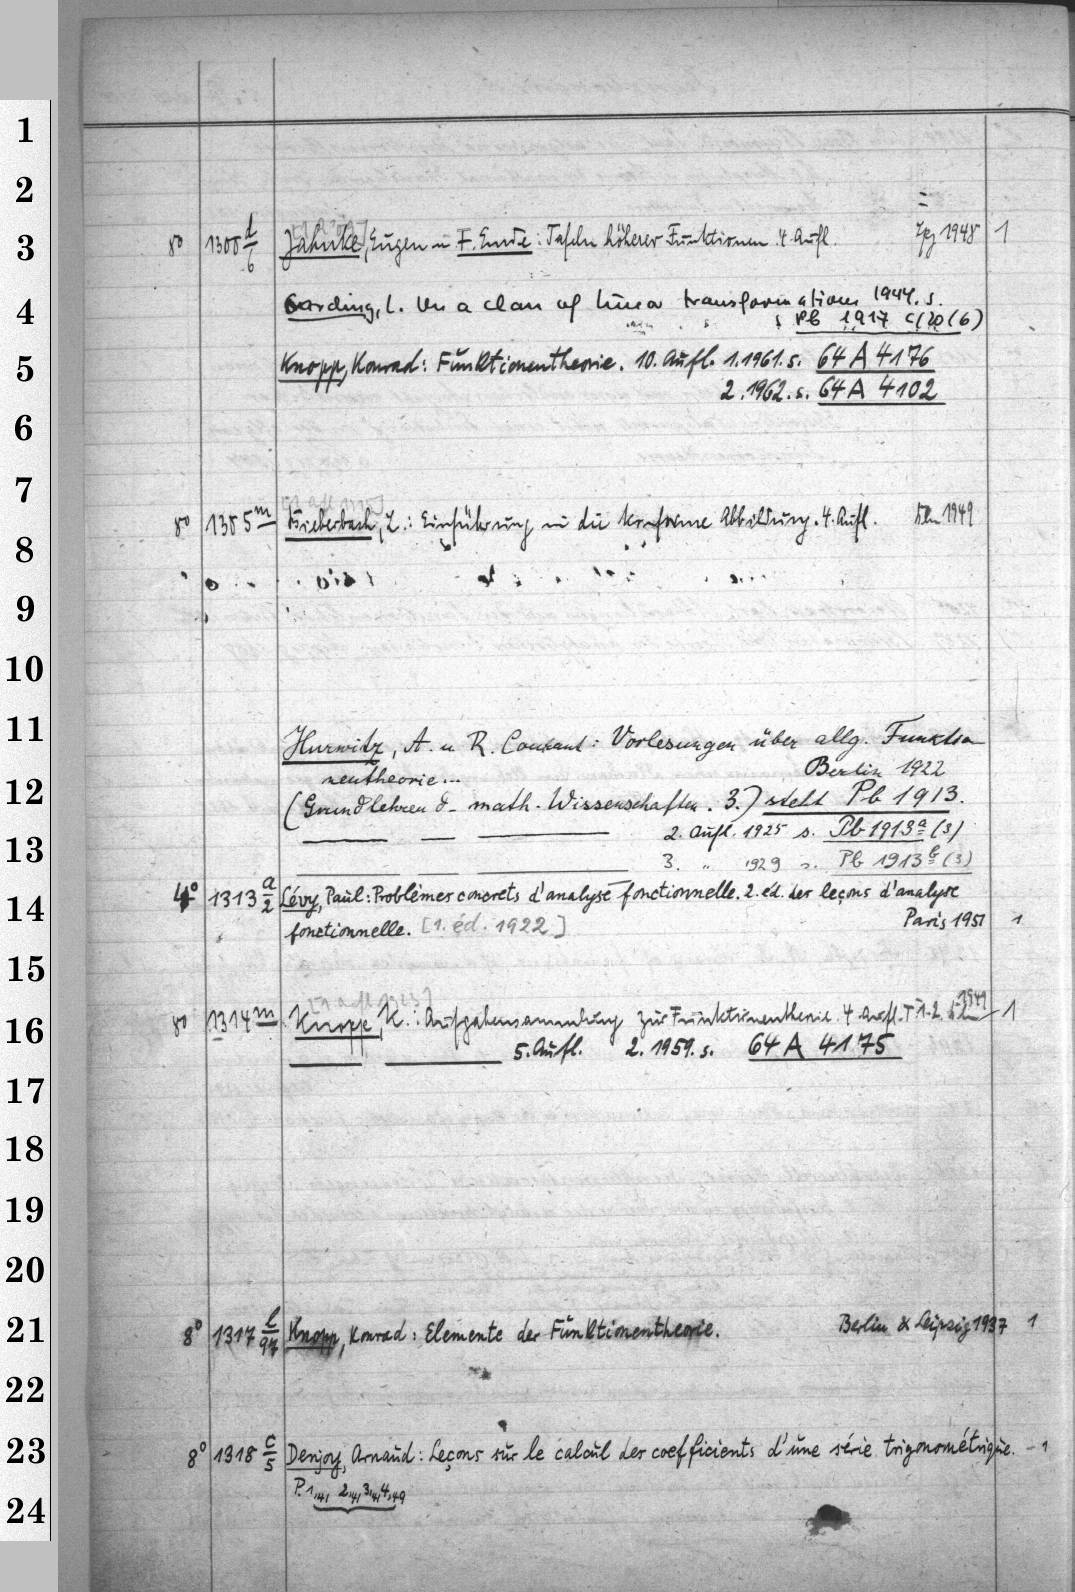 1
2
3
8° 1300 d/6 Jahnke, Eugen u F. Emde: Tafeln höherer Funktionen 4. Aufl. Lpz 1948 1
4
Garding, L. On a class of linear transformations 1944. s.
s Pb 1917 c/20 (6)
5
Knopp, Konrad: Funktionentheorie. 10. Aufl. 1. 1961. s. 64 A 4176
2. 1962. s. 64 A 4102
6
7
8° 1305 m Bieberbach, L.: Einführung in die konforme Abbildung. 4. Aufl. Bln 1949
8
9
10
11
Hurwitz, A. u R. Courant: Vorlesungen über allg. Funktio
nentheorie... Berlin 1922
12
(Grundlehren d. math. Wissenschaften. 3.) steht Pb 1913.
2. Aufl. 1925 s. Pb 1913a (3)
13
3. " 1929 s. Pb 1913b (3)
4° 1313 a/2 Lévy, Paul: Problèmes concrets d'analyse fonctionnelle. 2. éd. des leçons d'analyse
14
fonctionnelle. [1. éd. 1922] Paris 1951 1
15
[1. Aufl 1923]
8° 1314 m Knopp, K.: Aufgabensammlung zur Funktionentheorie. 4 Aufl. T 1-2. Bln 1949 1
16
5. Aufl. 2. 1959. s. 64 A 4175
17
18
19
20
21
8° 1317 l/97 Knopp, Konrad: Elemente der Funktionentheorie. Berlin & Leipzig 1937 1
22
23
8° 1318 c/5 Denjoy, Arnaud: Leçons sur le calcul des coefficients d'une série trigonométrique. - 1
P. 1,41 2,41 3,41 4,49
24